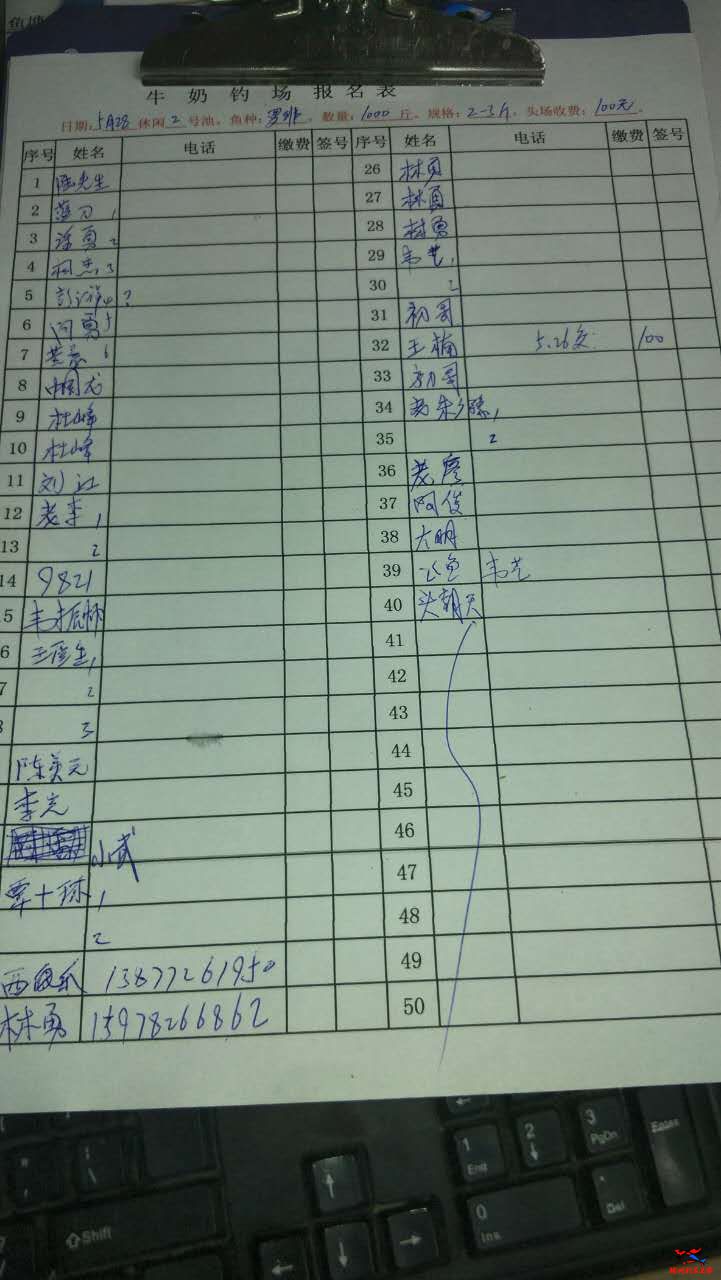 牛奶钓场报名表
日期:5月28 休闲 2 号池。鱼种:罗非。数量:1000 斤。规格:2-3斤。头场收费:100元。
序号 姓名 电话 缴费 签号 序号 姓名 电话 缴费 签号
1 陆先生 26 林勇
2 1 27 林勇
3 涂勇 2 28 林勇
4 3 29 韦艺 1
5 ? 30 2
6 阿勇 5 31 初哥
7 6 32 王楠 5.26交 100
8 中国龙 33 初哥
9 杜峰 34 1
10 杜峰 35 2
11 刘江 36 老廖
12 老李 1 37 阿俊
13 2 38 大明
14 9821 39 韦艺
5 韦振 40 头朝天
6 1 41
7 2 42
8 3 43
陈美元 44
李克 45
小武 46
覃十球 1 47
2 48
13877261950 49
林勇 15978266862 50
Shift
1 End
2
3 PgDn
Enter
0 Ins
. Del